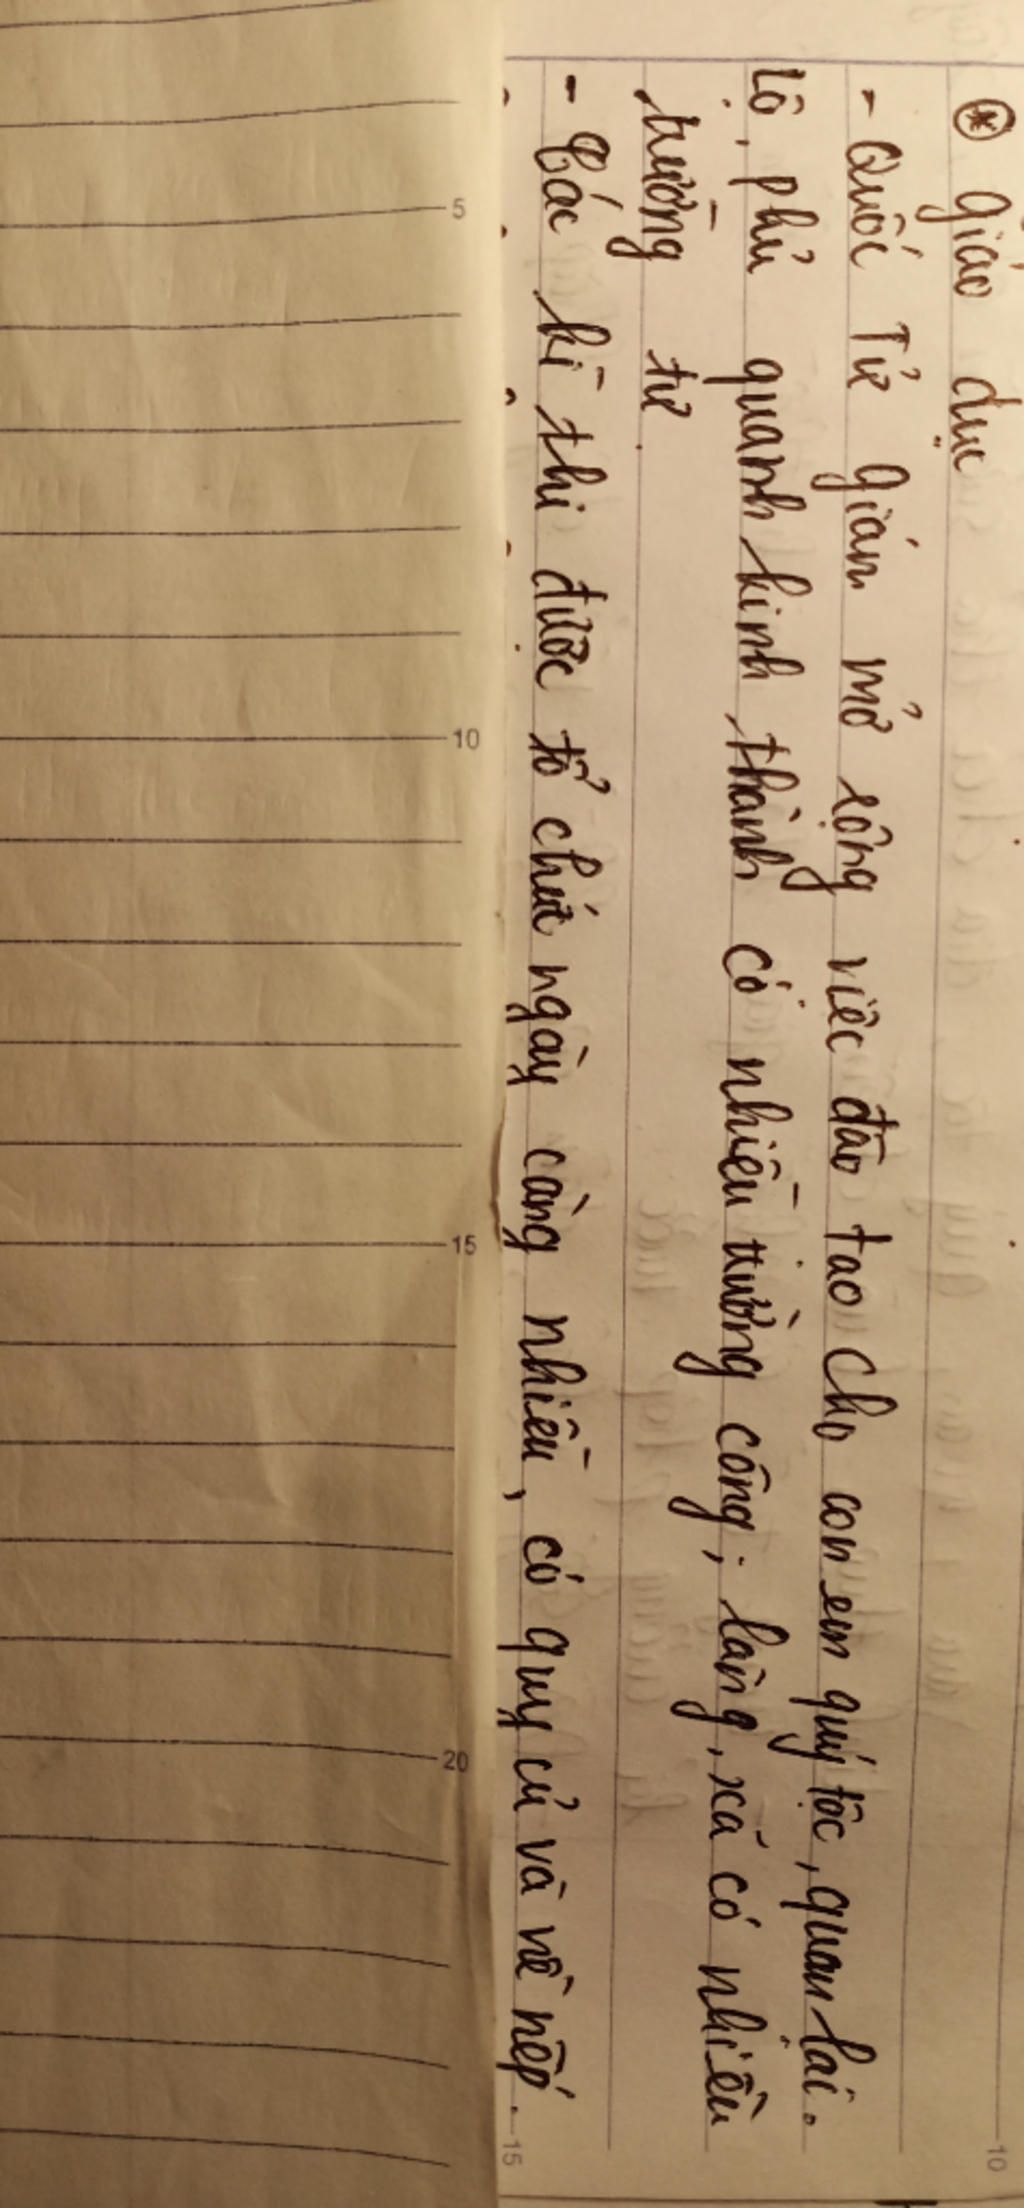 ⊛ Giáo dục
- Quốc Tử giám mở rộng việc đào tạo cho con em quý tộc, quan lại.
Lộ, phủ quanh kinh thành có nhiều trường công; làng, xã có nhiều
trường tư.
- Các kì thi được tổ chức ngày càng nhiều, có quy củ và nề nếp.
5
10
15
20
10
15